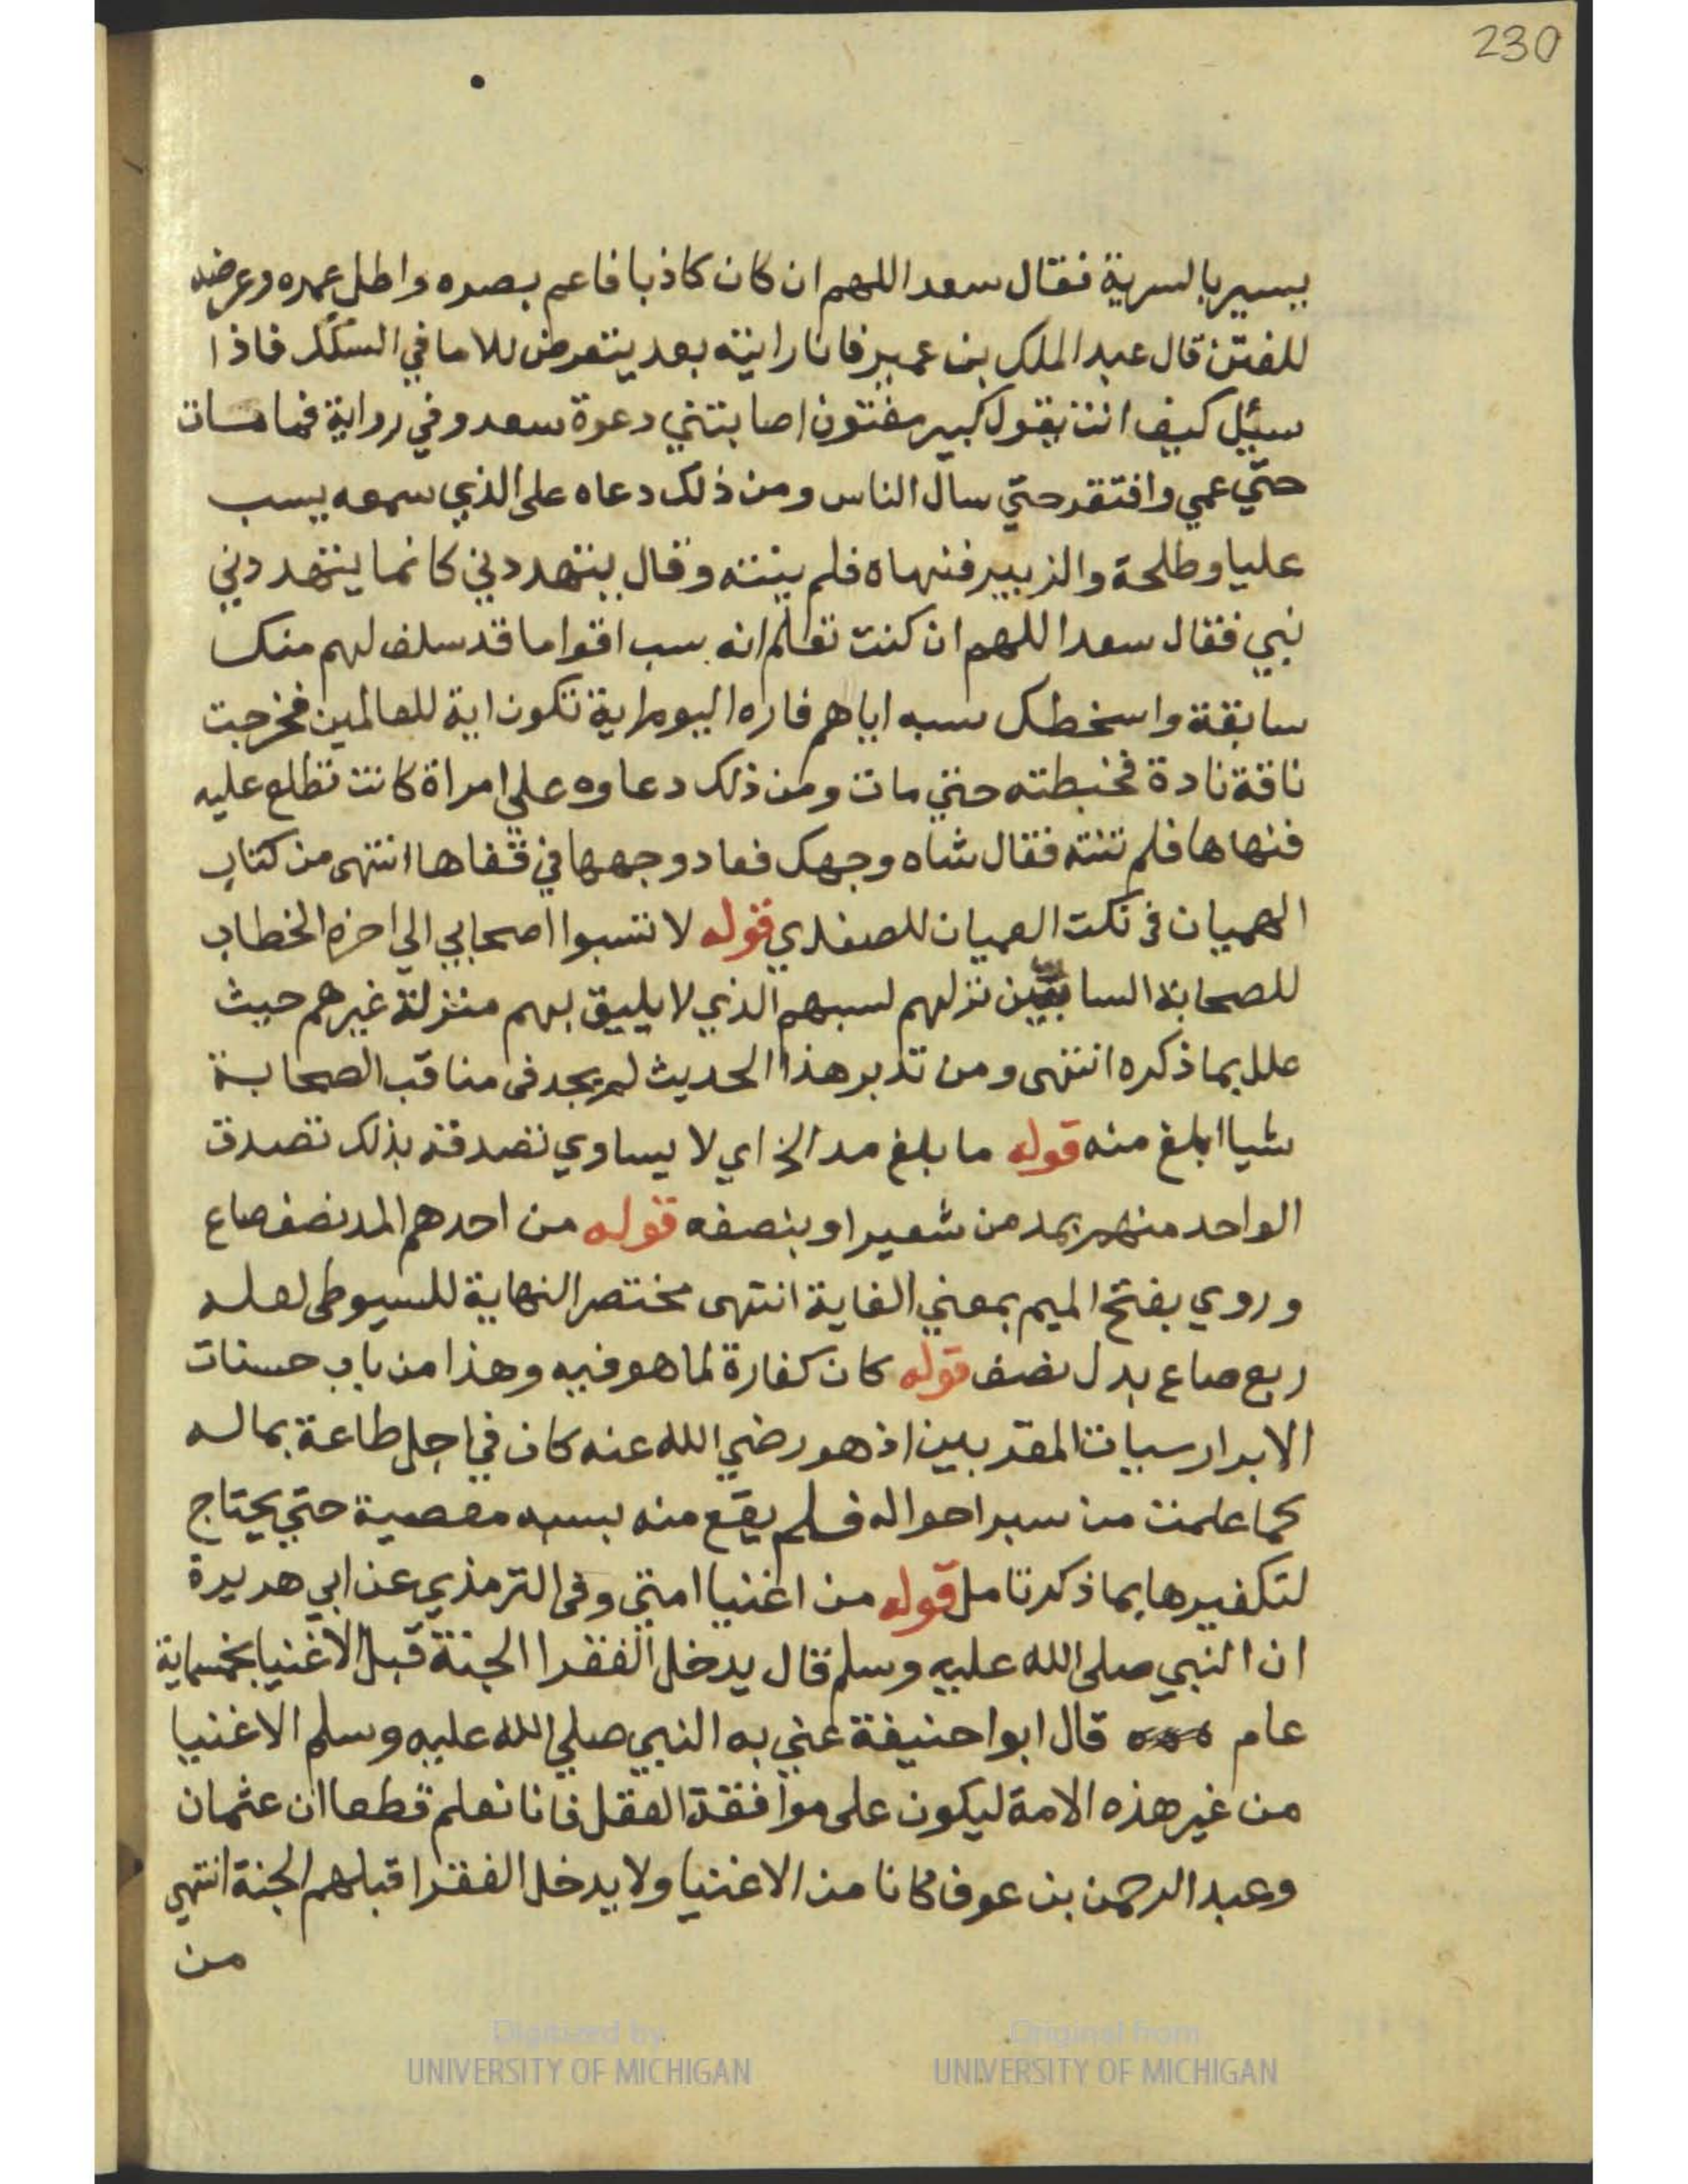 230
يسير بالسرية فقال سعد اللهم ان كان كاذبا فاعم بصره واطل عمره وعرضه
للفتن قال عبد الملك بن عمير فانا رايته بعد يتعرض للاما في السكك فاذا
سئيل كيف انت يقول كبير مفتون اصابتني دعوة سعد وفي رواية فما مات
حتي عمي وافتقر حتي سال الناس ومن ذلك دعاه على الذي سمعه يسب
عليا وطلحة والزبير فنهاه فلم ينته وقال يتهددني كانما يتهددني
نبي فقال سعد اللهم ان كنت تعلم انه سب اقواما قد سلف لهم منك
سابقة واسخطك سبه اياهم فاره اليوم اية تكون اية للعالمين فخرجت
ناقة نادة فخبطته حتي مات ومن ذلك دعاوه علي امراة كانت تطلع عليه
فنهاها فلم تنته فقال شاه وجهك فعاد وجهها في قفاها انتهى من كتاب
الهميان في نكت العميان للصفدي قوله لا تسبوا اصحابي الي اخره الخطاب
للصحابة السابين نزلهم لسبهم الذي لا يليق بهم منزلة غيرهم حيث
علل بما ذكره انتهى ومن تدبر هذا الحديث لم يجد في مناقب الصحابة
شيا ابلغ منه قوله ما بلغ مد الخ اي لا يساوي تصدقه بذلك تصدق
الواحد منهم بمد من شعير او بنصفه قوله من احدهم المد نصف صاع
وروي بفتح الميم بمعني الغاية انتهى مختصر النهاية للسيوطى لعله
ربع صاع بدل نصف قوله كان كفارة لما هو فيه وهذا من باب حسنات
الابرار سيات المقربين اذ هو رضي الله عنه كان في اجل طاعة بماله
كما علمت من سبر احواله فلم يقع منه بسببه معصية حتي يحتاج
لتكفيرها بما ذكر تامل قوله من اغنيا امتي وفى الترمذي عن ابي هريرة
ان النبي صلى الله عليه وسلم قال يدخل الفقرا الجنة قبل الاغنيا بخمسماية
عام قال ابوا حنيفة عني به النبي صلي الله عليه وسلم الاغنيا
من غير هذه الامة ليكون على موافقة العقل فانا نعلم قطعا ان عثمان
وعبد الرحمن بن عوف كانا من الاغنيا ولا يدخل الفقرا قبلهم الجنة انتهي
من
Digitized by UNIVERSITY OF MICHIGAN
Original from UNIVERSITY OF MICHIGAN